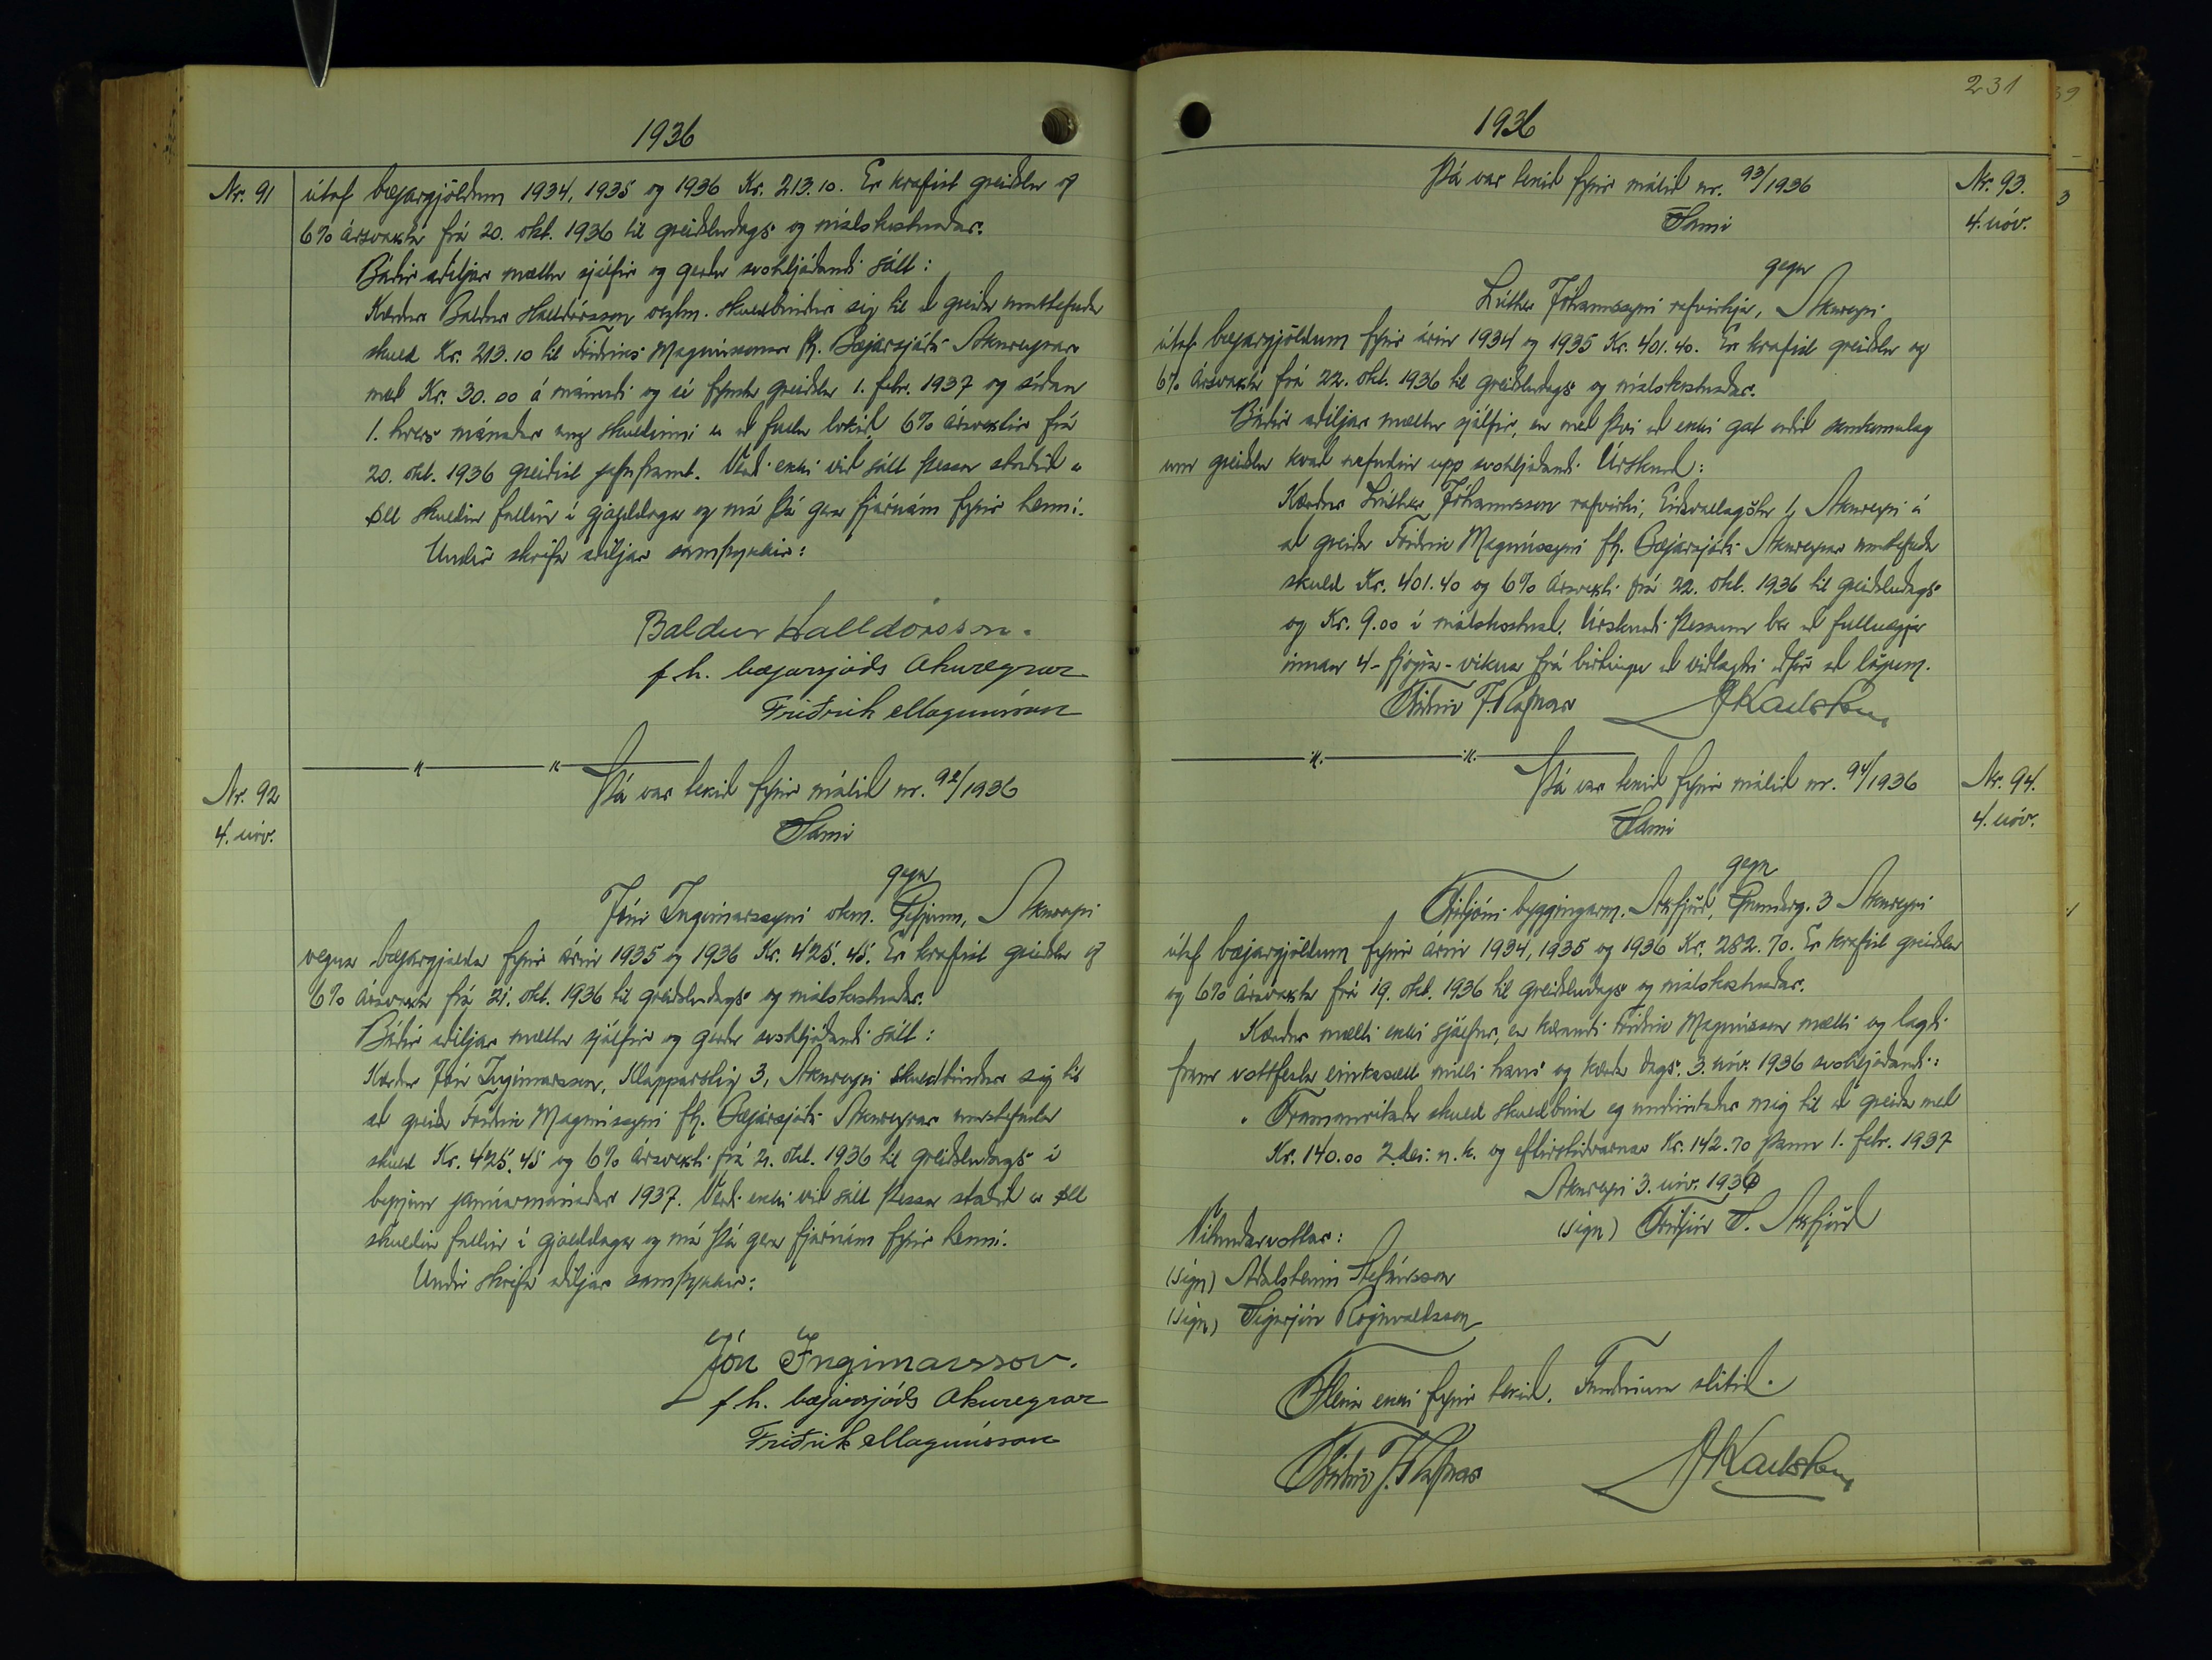 1936
Nr. 91
útaf bæjargjöldum 1934, 1935 og 1936 Kr. 213.10. Er krafist greiðslu og
6% ársvaxta frá 20. okt. 1936 til greiðsludags og málskostnaðar.
Báðir aðiljar mættu sjálfir og gerðu svohljóðandi sátt:
Kærður Baldur Halldórsson skuldbindur sig til að greiða umstefnda
skuld Kr. 213.10 til Friðriks Magnússonar fh. Bæjarsjóðs Akureyrar
með Kr. 30.00 á mánuði og sé fyrsta greiðsla 1. febr. 1937 og síðan
1. hvers mánaðar unz skuldinni er að fullu lokið, 6% ársvextir frá
20. okt. 1936 greiðist jafnframt. Verði ekki við sátt þessa staðið er
öll skuldin fallin í gjalddaga og má þá gera fjárnám fyrir henni.
Undir skrifa aðiljar samþykkir:
Baldur Halldórsson.
f.h. bæjarsjóðs Akureyrar
Friðrik Magnússon
Nr. 92
4. nóv.
Þá var tekið fyrir málið nr. 92/1936
Sami
gegn
Jóni Ingimarssyni Akureyri
vegna bæjargjalda fyrir árin 1935 og 1936 Kr. 425.45. Er krafist greiðslu og
6% ársvaxta frá 21. okt. 1936 til greiðsludags og málskostnaðar.
Báðir aðiljar mættu sjálfir og gerðu svohljóðandi sátt:
Kærður Jón Ingimarsson, Klapparstíg 3, Akureyri skuldbindur sig til
að greiða Friðrik Magnússyni fh. Bæjarsjóðs Akureyrar umstefnda
skuld Kr. 425.45 og 6% ársvexti frá 21. okt. 1936 til greiðsludags í
byrjun janúarmánaðar 1937. Verði ekki við sátt þessa staðið er öll
skuldin fallin í gjalddaga og má þá gera fjárnám fyrir henni.
Undir skrifa aðiljar samþykkir:
Jón Ingimarsson.
f.h. bæjarsjóðs Akureyrar
Friðrik Magnússon
231
1936
Nr. 93.
4. nóv.
Þá var tekið fyrir málið nr. 93/1936
Sami
gegn
Lúther Jóhannssyni rafvirkja, Akureyri
útaf bæjargjöldum fyrir árin 1934 og 1935 Kr. 401.40. Er krafist greiðslu og
6% ársvaxta frá 22. okt. 1936 til greiðsludags og málskostnaðar.
Báðir aðiljar mættu sjálfir, en með því að ekki gat orðið samkomulag
um greiðslu kvað nefndin upp svohljóðandi Úrskurð:
Kærður Lúther Jóhannsson rafvirki, Eiðsvallagötu Akureyri á
að greiða Friðrik Magnússyni fh. Bæjarsjóðs Akureyrar umstefnda
skuld Kr. 401.40 og 6% ársvexti frá 22. okt. 1936 til greiðsludags
og Kr. 9.00 í málskostnað. Úrskurði þessum ber að fullnægja
innan 4-fjögra-vikna frá birtingu að viðlagðri aðför að lögum.
Friðrik J. Rafnar
Nr. 94.
4. nóv.
Þá var tekið fyrir málið nr. 94/1936
Sami
gegn
Friðjóni byggingarm. Axfjörð, Grundarg. 3 Akureyri
útaf bæjargjöldum fyrir árin 1934, 1935 og 1936 Kr. 282.70. Er krafist greiðslu
og 6% ársvaxta frá 19. okt. 1936 til greiðsludags og málskostnaðar.
Kærður mætti ekki sjálfur, en kærandi Friðrik Magnússon mætti og lagði
fram vottfesta einkasátt milli hans og kærða dags. 3. nóv. 1936 svohljóðandi:
Framanritaða skuld skuldbind eg undirritaður mig til að greiða með
Kr. 140.00 2. des. n.k. og eftirstöðvarnar Kr. 142.70 þann 1. febr. 1937
Akureyri 3. nóv. 1936
(sign) Friðjón S. Axfjörð
Vitundarvottar:
(sign) Aðalsteinn Stefánsson
(sign) Sigurjón Rögnvaldsson
Fleira ekki fyrir tekið. Fundinum slitið.
Friðrik J. Rafnar